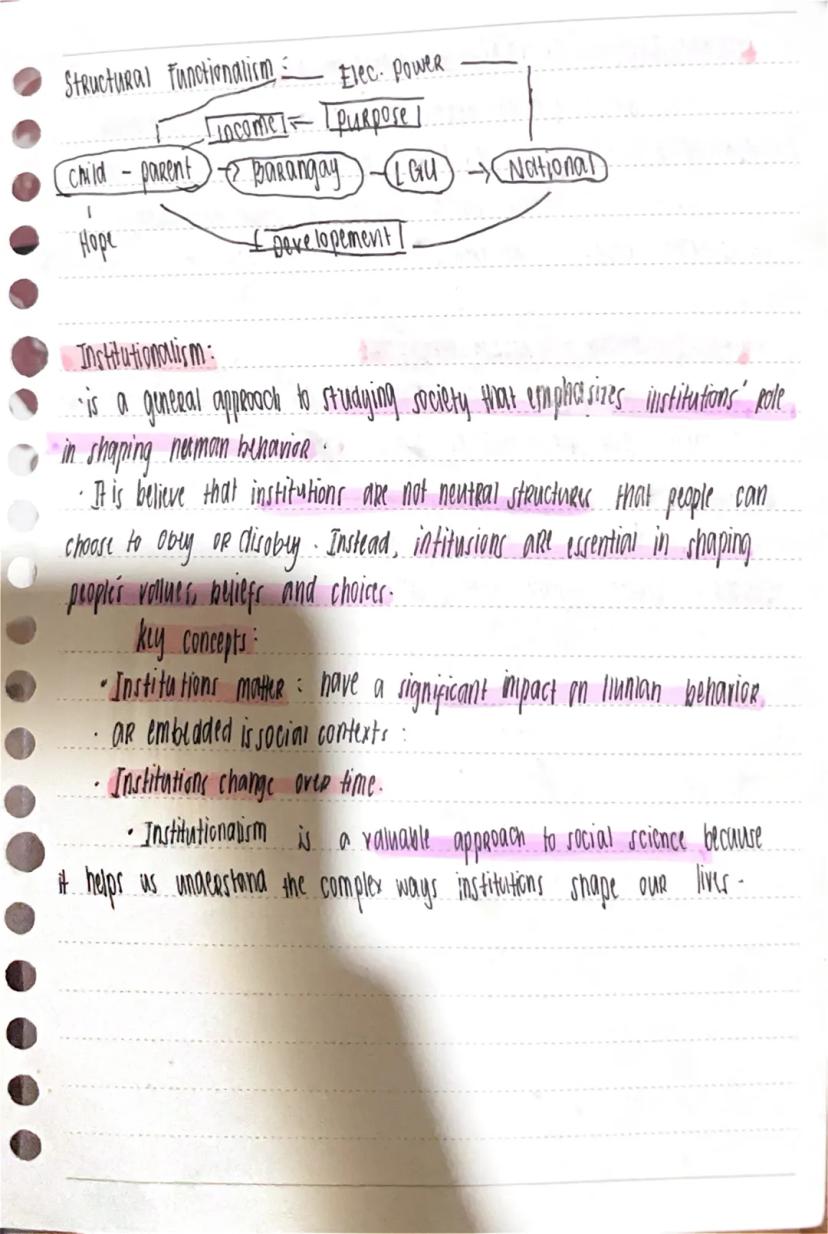 Structural Functionalism: Elec. power
Income ← Purpose
Child - parent → Barangay - LGU → National
Hope
Developement
Institutionalism:
· is a general approach to studying society that emphasizes institutions' role
in shaping human behavior.
· It is believe that institutions are not neutral structures that people can
choose to obey or disobey. Instead, intitusions are essential in shaping
people's vallues, beliefs and choices.
key concepts:
· Institutions matter: have a significant impact on Human behavior
· ar embedded is social contexts:
· Institutions change over time.
· Institutionalism is a valuable approach to social science because
it helps us understand the complex ways institutions shape our lives.